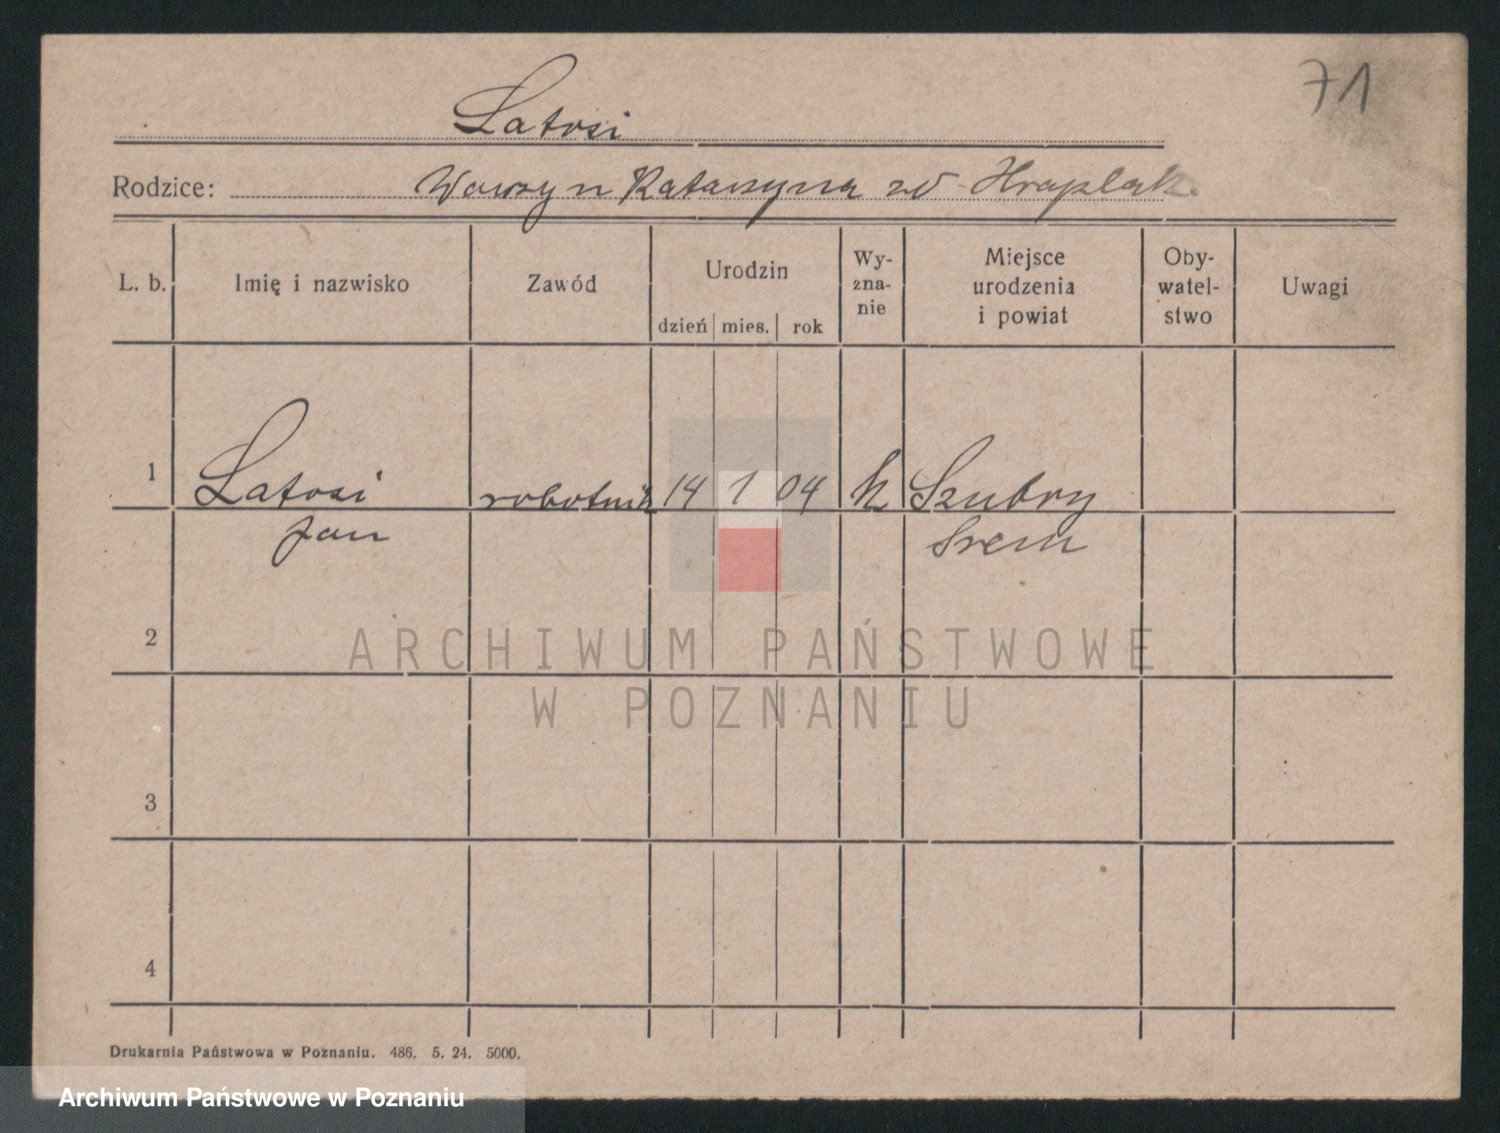 71
Latosi
Rodzice: Wawrzyn Katarzyna zd Hraplak.
L. b. Imię i nazwisko Zawód Urodzin dzień mies. rok Wy-zna-nie Miejsce urodzenia i powiat Oby-watel-stwo Uwagi
1 Latosi robotnik 14 1 04 k
Jan Srem
2
ARCHIWUM PAŃSTWOWE
W POZNANIU
3
4
Drukarnia Państwowa w Poznaniu. 486. 5. 24. 5000.
Archiwum Państwowe w Poznaniu